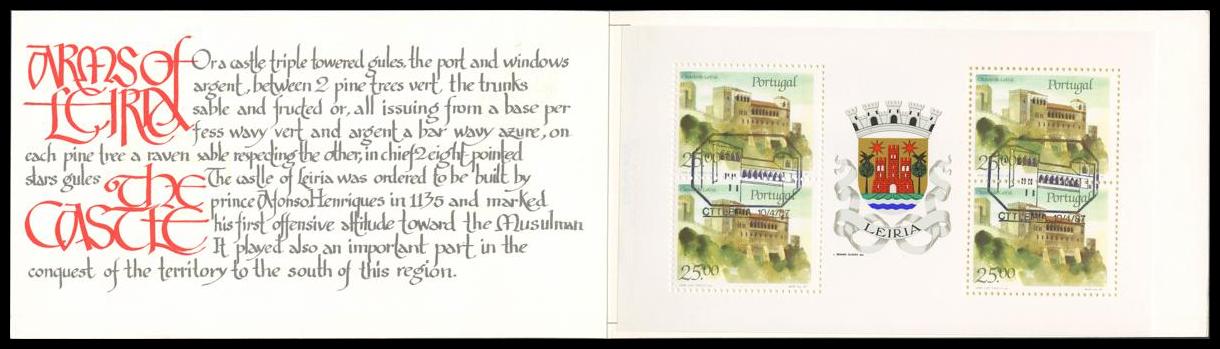 ARMS of LEIRIA
Or a castle triple towered gules, the port and windows
argent, between 2 pine trees vert, the trunks
sable and fructed or, all issuing from a base per
fess wavy vert and argent a bar wavy azure, on
each pine tree a raven sable respecting the other, in chief 2 eight pointed
stars gules
The CASTLE
The castle of Leiria was ordered to be built by
prince Afonso Henriques in 1135 and marked
his first offensive attitude toward the Musulman
It played also an important part in the
conquest of the territory to the south of this region.
Castelo de Leiria
Portugal
25.00
CTT LEIRIA 10/4/87
Portugal
25.00
LEIRIA
Castelo de Leiria
Portugal
25.00
CTT LEIRIA 10/4/87
Portugal
25.00